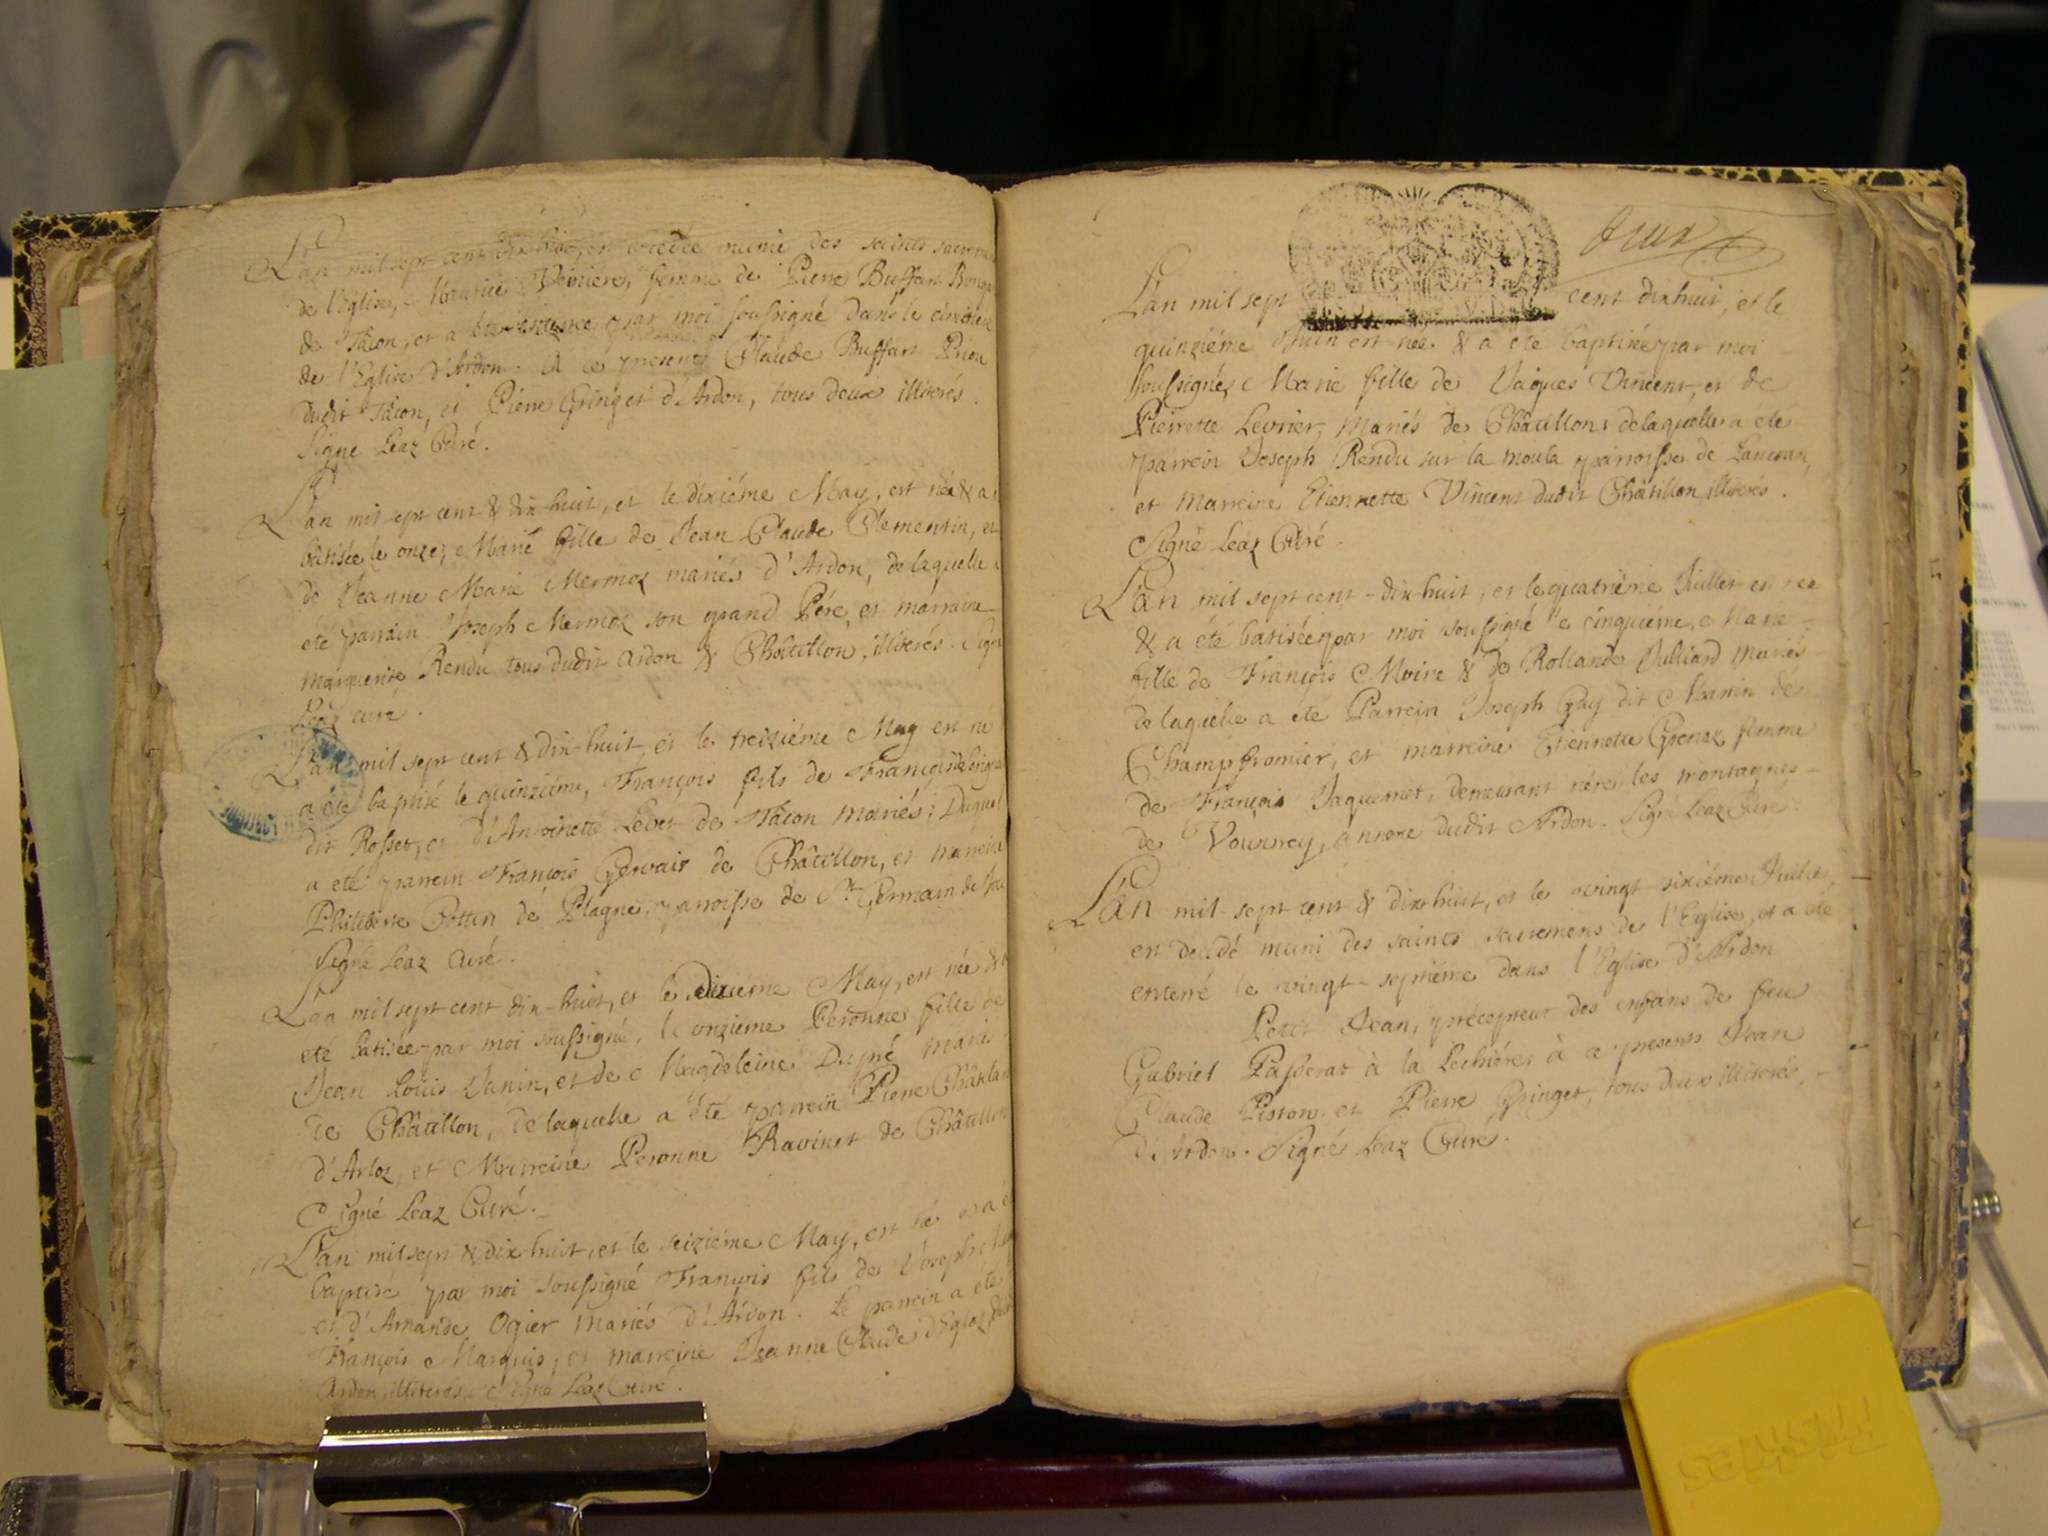 L'an mil sept cent dix huit, est decedée munie des saints sacremens
de l'Eglise, femme de Pierre Buffart
de Tacon, et a été enterrée par moi soussigné dans le cimetiere
de l'Eglise d'Ardon. à ce presents Claude Buffart Prieu
dudit Tacon, et Pierre Gringet d'Ardon, tous deux illiterés.
Signé Leaz Curé.
L'an mil sept cent & dix-huit, et le dixiéme May, est née & a
batisée le onze, Marie fille de Jean Claude Clementin, et
de Jeanne Marie Mermoz mariés d'Ardon, de laquelle a
été parrain Joseph Mermoz son grand Pére, et marraine
Marguerite Rendu tous dudit Ardon & Châtillon, illiterés. Signé
Leaz curé.
L'an mil sept cent & dix-huit, et le treiziéme May est né
a été baptisé le quinziéme, François fils de François
dit Rosset, et d'Antoinette Levet de Tacon mariés; Duquel
a eté parrein François Gervais de Châtillon, et marreine
Philiberte Cottin de Plagne, parroisse de St. Germain de
Signé Leaz Curé.
L'an mil sept cent dix-huit, et le dixieme May, est née & a
eté batisée par moi soussigné, le onzieme Peronne fille de
Jean Louis Janin, et de Magdeleine Dupré mariés
de Châtillon, de laquelle a été parrein Pierre Châtelain
d'Arloz, et Marreine Peronne Ravinet de Châtillon
Signé Leaz Curé.
L'an mil sept & dix huit, et le seiziéme May, est né & a été
baptisé par moi soussigné François fils de Joseph
et d'Amande Ogier mariés d'Ardon. Le parrein a été
François Marquis, et marreine Jeanne Claude
Ardon, illiterés. Signé Leaz Curé.
L'an mil sept cent dixhuit, et le
quinziéme Juin est née & a eté baptisée par moi
soussigné, Marie fille de Jaques Vincent, et de
Pierrette Levrier, mariés de Châtillon: de laquelle a eté
parrein Joseph Rendu sur la moula parroisse de Lancran,
et marreine Etiennette Vincent dudit Châtillon, illiterés.
Signé Leaz Curé.
L'an mil sept cent-dix-huit, et le quatriéme Juillet est née
& a été batisée par moi soussigné le cinquiéme, Marie
fille de François Moine & de Rollande Julliard mariés
de laquelle a eté Parrein Joseph Gay dit Manin de
Champfromier, et marreine Etiennette Grenaz femme
de François Jaquemet, demeurant rére les montagnes
de Vouvrey, annexe dudit Ardon. Signé Leaz Curé.
L'an mil sept cent & dix-huit, et le vingt-sixiéme Juillet
est decedé muni des saints sacremens de l'Eglise, et a eté
enterré le vingt-septiéme dans l'Eglise d'Ardon
Petit Jean, précepteur des enfans de feu
Gabriel Passerat à la Lechiére, à ce presents Jean
Claude Piston, et Pierre Gringet, tous deux illiterés,
d'Ardon. Signé Leaz Curé.